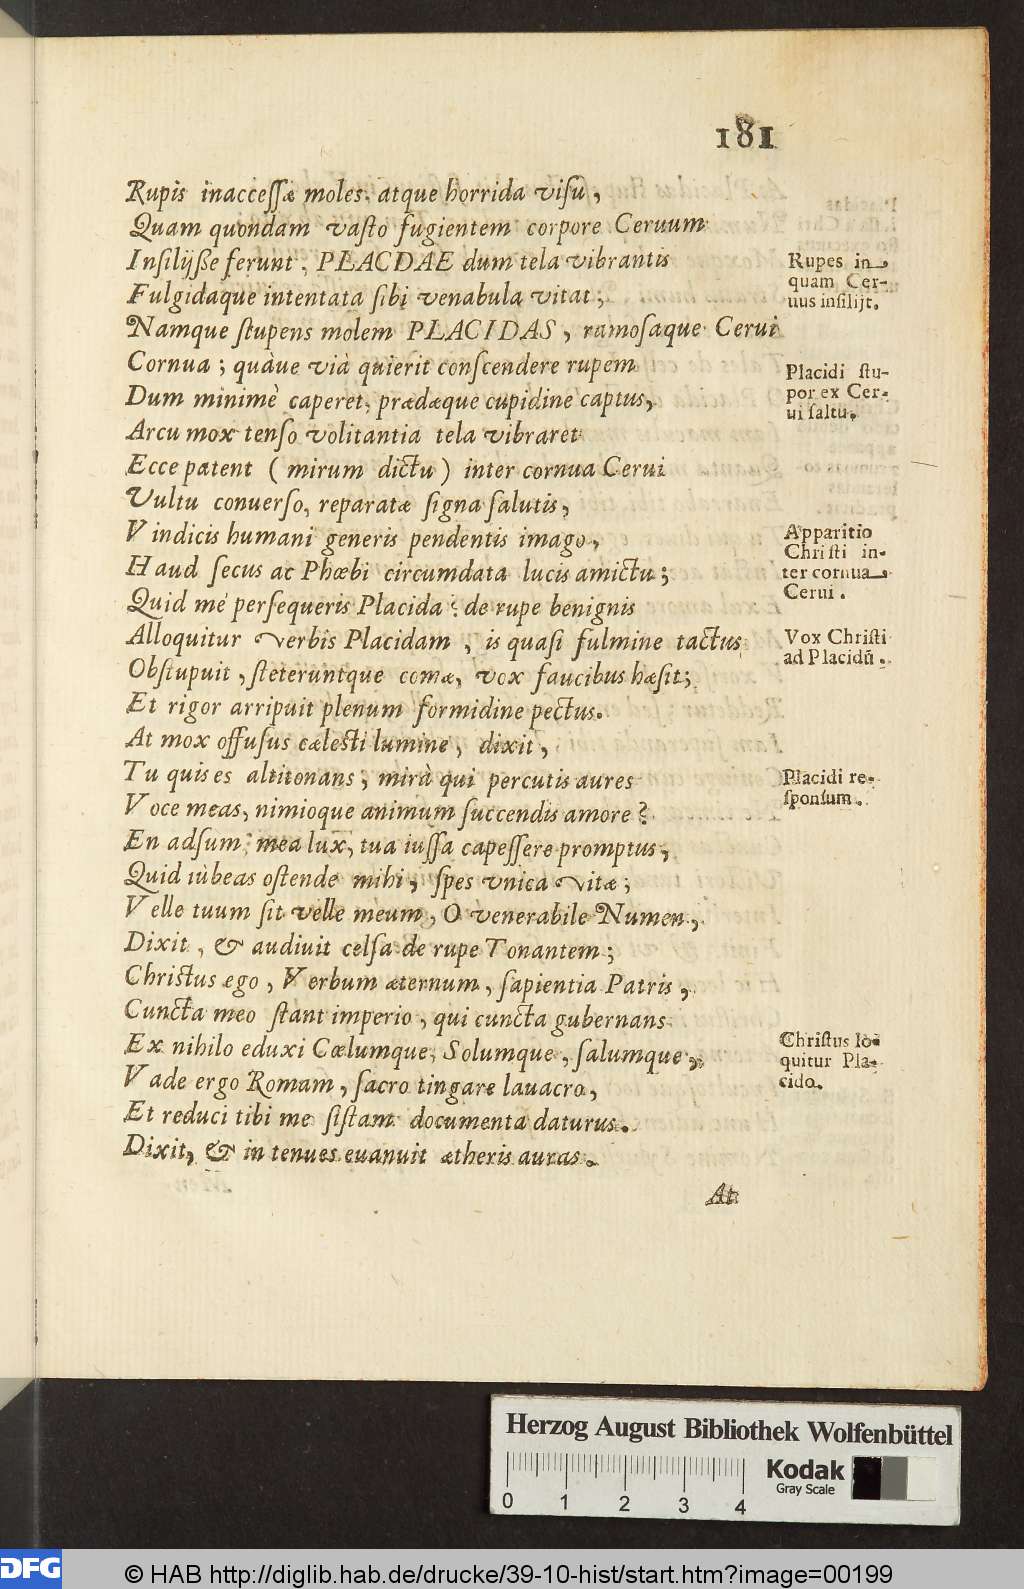 181
Rupis inaccessæ moles, atque horrida visu,
Quam quondam vasto fugientem corpore Ceruum
Insilijße ferunt, PLACDAE dum tela vibrantis
Fulgidaque intentata sibi venabula vitat;
Namque stupens molem PLACIDAS, ramosaque Cerui
Cornua; quàue vià quierit conscendere rupem
Dum minimè caperet, prædæque cupidine captus,
Arcu mox tenso volitantia tela vibraret
Ecce patent (mirum dictu) inter cornua Cerui
Vultu conuerso, reparatæ signa salutis,
Vindicis humani generis pendentis imago,
Haud secus ac Phœbi circumdata lucis amictu;
Quid me persequeris Placida? de rupe benignis
Alloquitur verbis Placidam, is quasi fulmine tactus
Obstupuit, steteruntque comæ, vox faucibus hæsit;
Et rigor arripuit plenum formidine pectus.
At mox offusus cælesti lumine, dixit,
Tu quis es altitonans, mirà qui percutis aures
Voce meas, nimioque animum succendis amore?
En adsum, mea lux, tua iussa capessere promptus,
Quid iùbeas ostende mihi, spes vnica vitæ;
Velle tuum sit velle meum, O venerabile Numen,
Dixit, & audiuit celsa de rupe Tonantem;
Christus ego, Verbum æternum, sapientia Patris,
Cuncta meo stant imperio, qui cuncta gubernans
Ex nihilo eduxi Cœlumque, Solumque, salumque,
Vade ergo Romam, sacro tingare lauacro,
Et reduci tibi me sistam documenta daturus.
Dixit, & in tenues euanuit ætheris auras.
At
Rupes in
quam Cer-
uus insilijt.
Placidi stu-
por ex Cer-
ui saltu.
Apparitio
Christi in-
ter cornua
Cerui.
Vox Christi
ad Placidũ.
Placidi re-
sponsum.
Christus lo-
quitur Pla-
cido.
Herzog August Bibliothek Wolfenbüttel
0 1 2 3 4
Kodak
Gray Scale
DFG
© HAB http://diglib.hab.de/drucke/39-10-hist/start.htm?image=00199